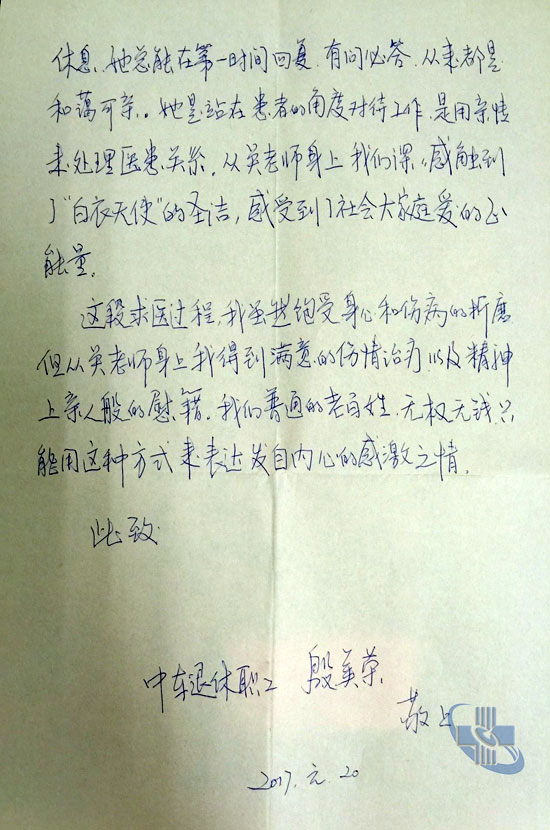 休息、她总能在第一时间回复、有问必答、从来都是
和蔼可亲。她是站在患者的角度对待工作、是用亲情
来处理医患关系。从吴老师身上我们深深感触到
了“白衣天使”的圣洁，感受到了社会大家庭爱的正
能量。
这段求医过程，我虽然饱受身心和伤病的折磨
但从吴老师身上我得到满意的伤情治疗以及精神
上亲人般的慰籍。我们普通的老百姓、无权无钱只
能用这种方式来表达发自内心的感激之情。
此致
退休职工 殷美荣
敬上
2017.元.20